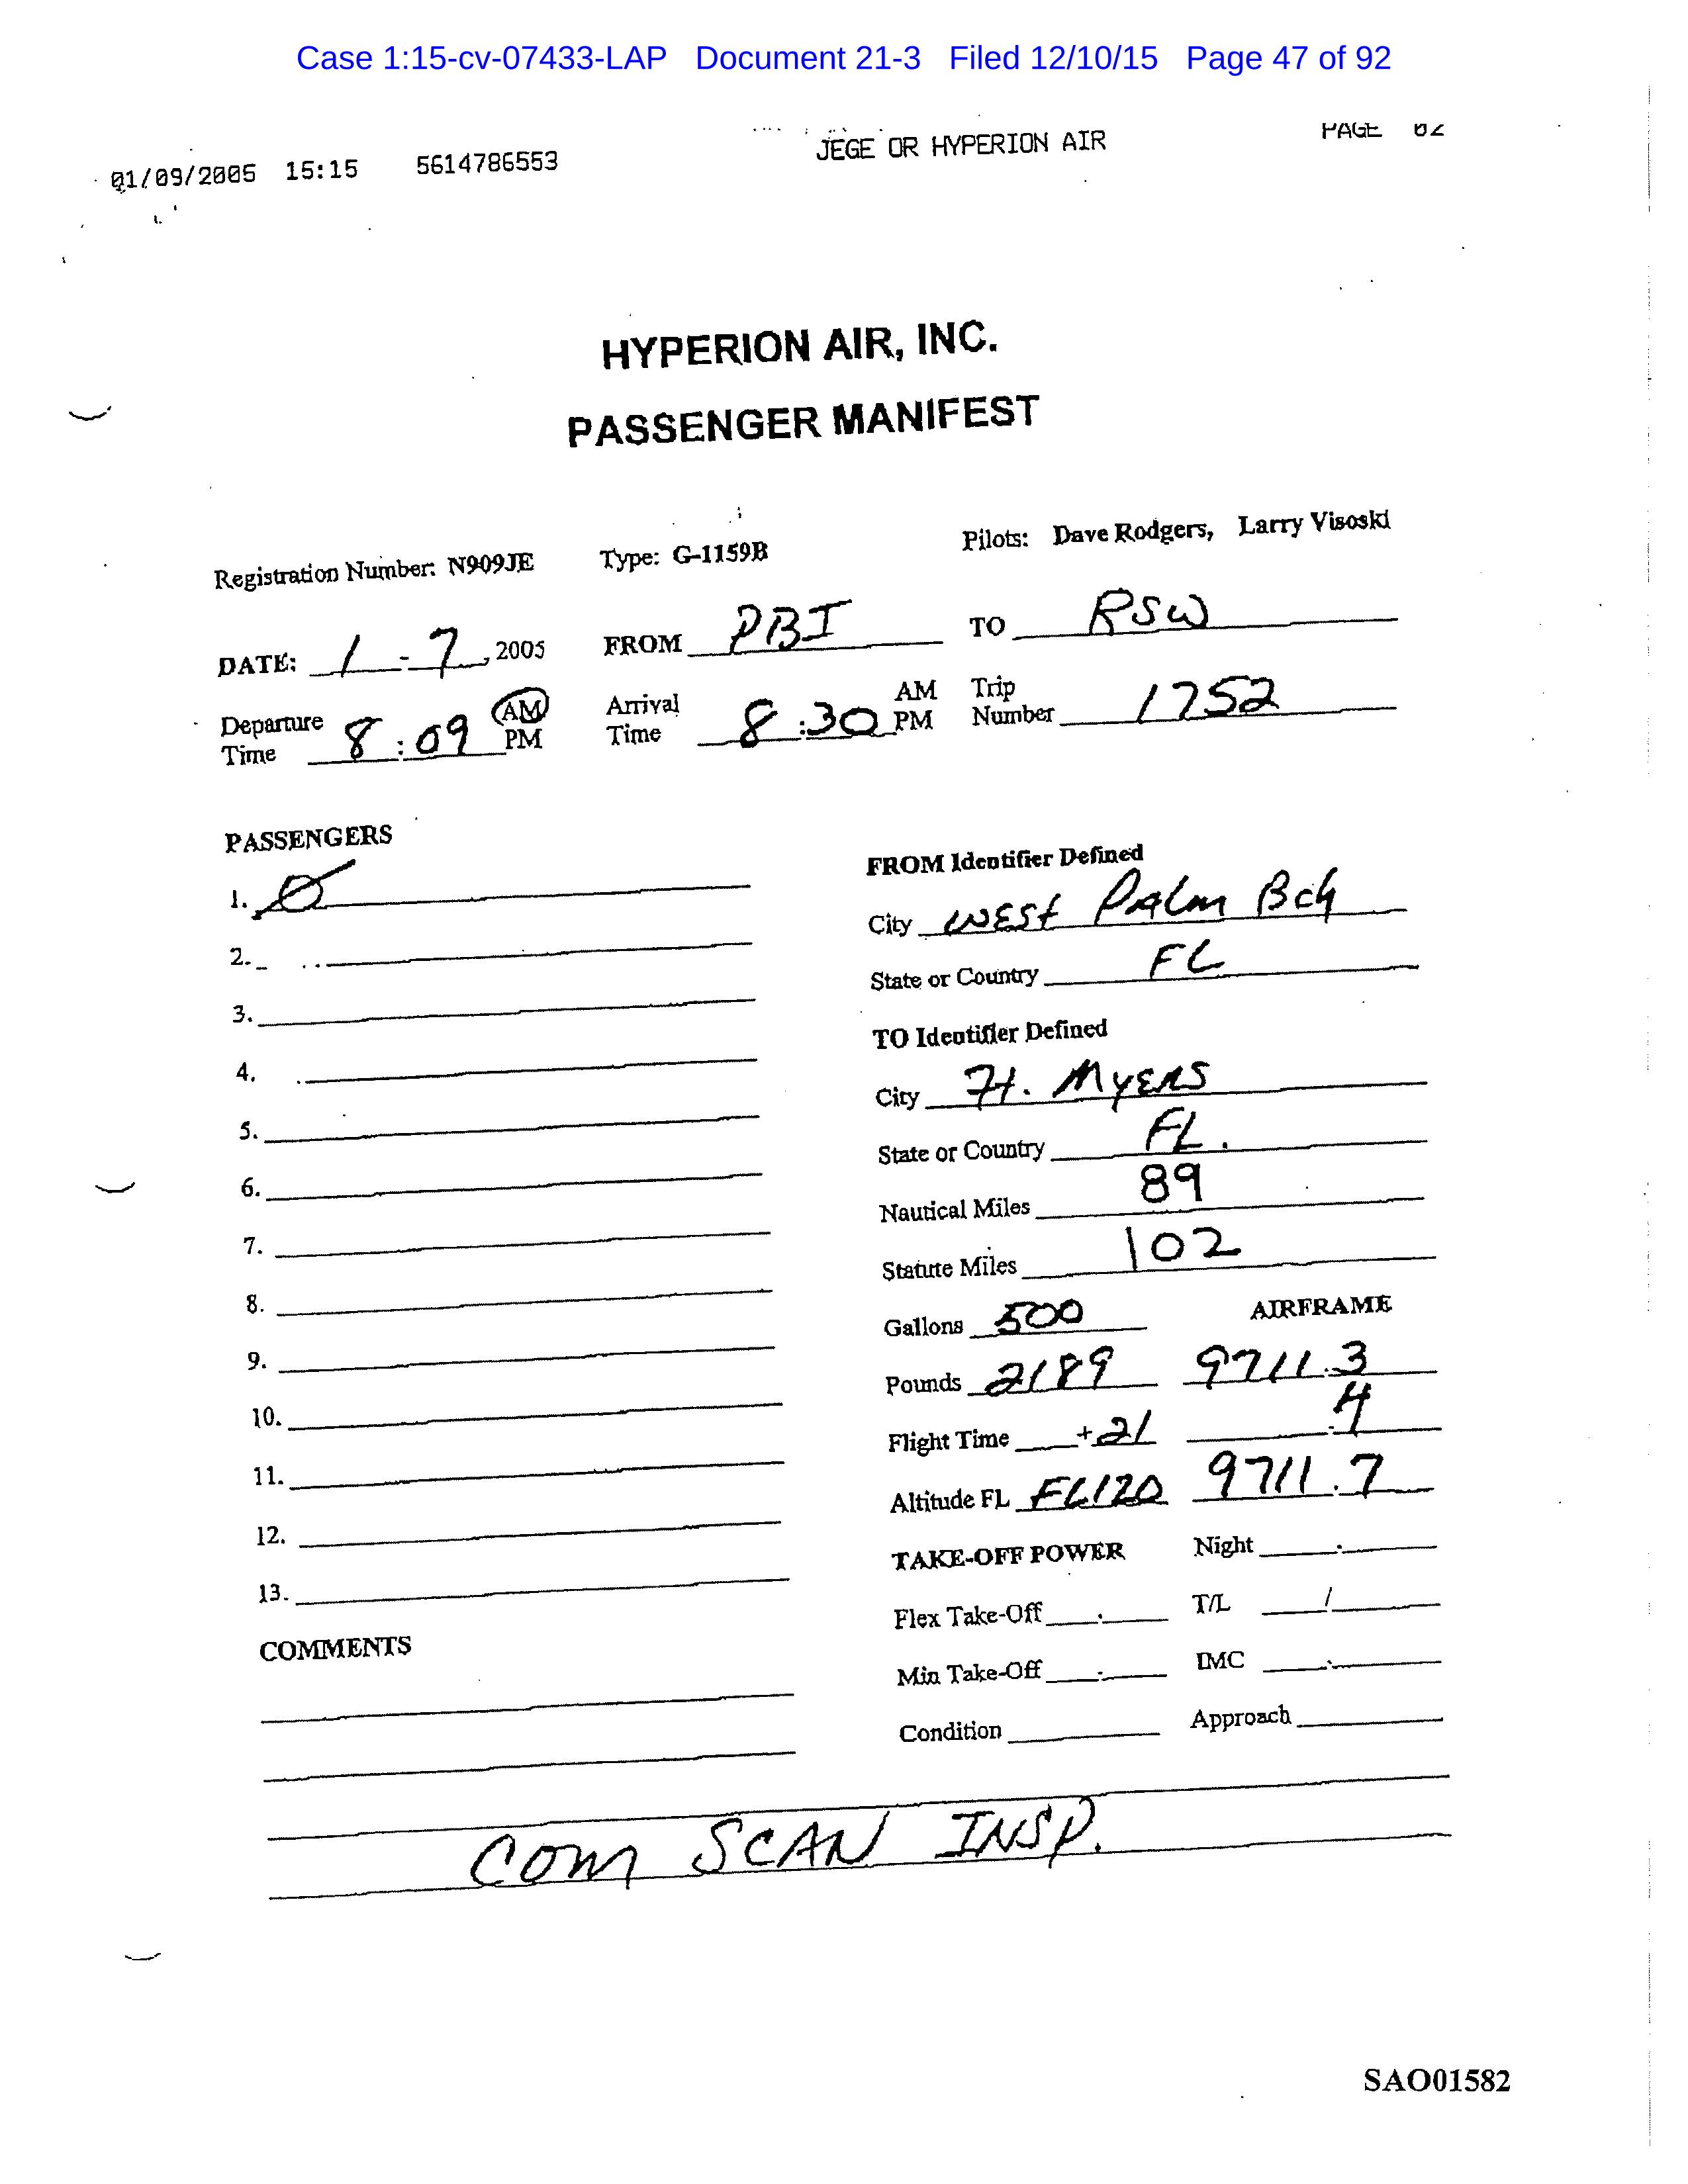 Case 1:15-cv-07433-LAP Document 21-3 Filed 12/10/15 Page 47 of 92
01/09/2005 15:15 5614786553 JEGE OR HYPERION AIR PAGE 02
HYPERION AIR, INC.
PASSENGER MANIFEST
Registration Number: N909JE Type: G-1159B Pilots: Dave Rodgers, Larry Visoski
DATE: 1 - 7, 2005 FROM PBI TO RSW
Departure Time 8:09 AM PM Arrival Time 8:30 AM PM Trip Number 1752
PASSENGERS
1. Ø
2.
3.
4.
5.
6.
7.
8.
9.
10.
11.
12.
13.
COMMENTS
FROM Identifier Defined
City WEST PALM Bch
State or Country FL
TO Identifier Defined
City Ft. MYERS
State or Country FL.
Nautical Miles 89
Statute Miles 102
Gallons 500 AIRFRAME
Pounds 2189 9711.3
Flight Time +21 .4
Altitude FL FL120 9711.7
TAKE-OFF POWER Night .
Flex Take-Off . T/L /
Min Take-Off . IMC .
Condition Approach
COM SCAN INSP.
SAO01582